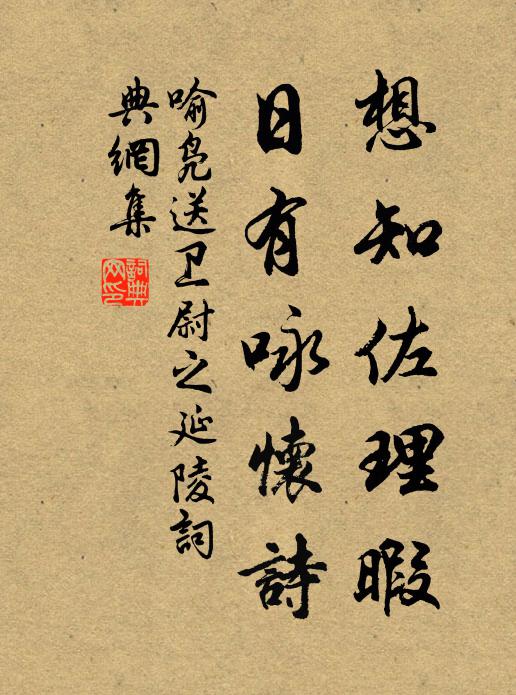 想知佐理暇
日有咏懷詩
喻凫送卫尉之延陵詞
典網集
詞典
网印